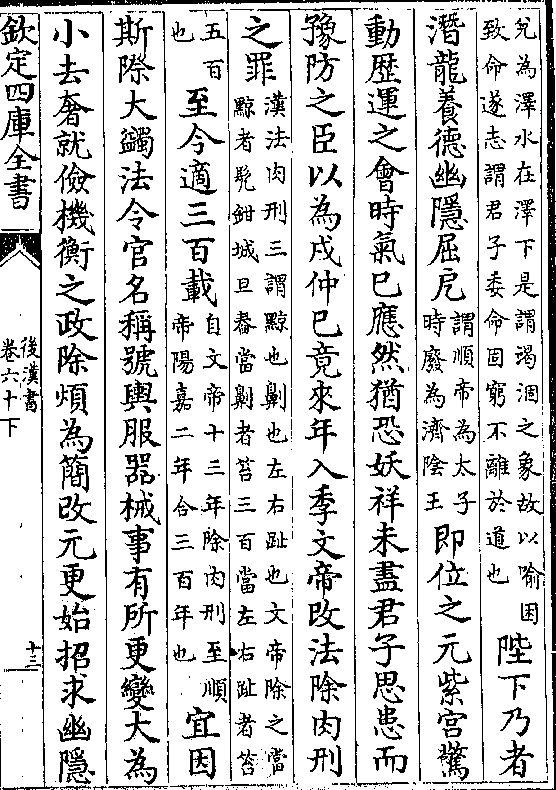 兌為澤水在澤下是謂渴涸之象故以喻困
致命遂志謂君子委命固窮不離於道也
陛下乃者
潛龍養德幽隱屈厄
謂順帝為太子
時廢為濟陰王
即位之元紫宮驚
動歴運之會時氣已應然猶恐妖祥未盡君子思患而
豫防之臣以為戌仲已竟來年入季文帝改法除肉刑
之罪
漢法肉刑三謂黥也劓也左右趾也文帝除之當
黥者髠鉗城旦舂當劓者笞三百當左右趾者笞
五百
也
至今適三百載
自文帝十三年除肉刑至順
帝陽嘉二年合三百年也
宜因
斯際大蠲法令官名稱號輿服器械事有所更變大為
小去奢就儉機衡之政除煩為簡改元更始招求幽隱
欽定四庫全書
後漢書
卷六十下
十三